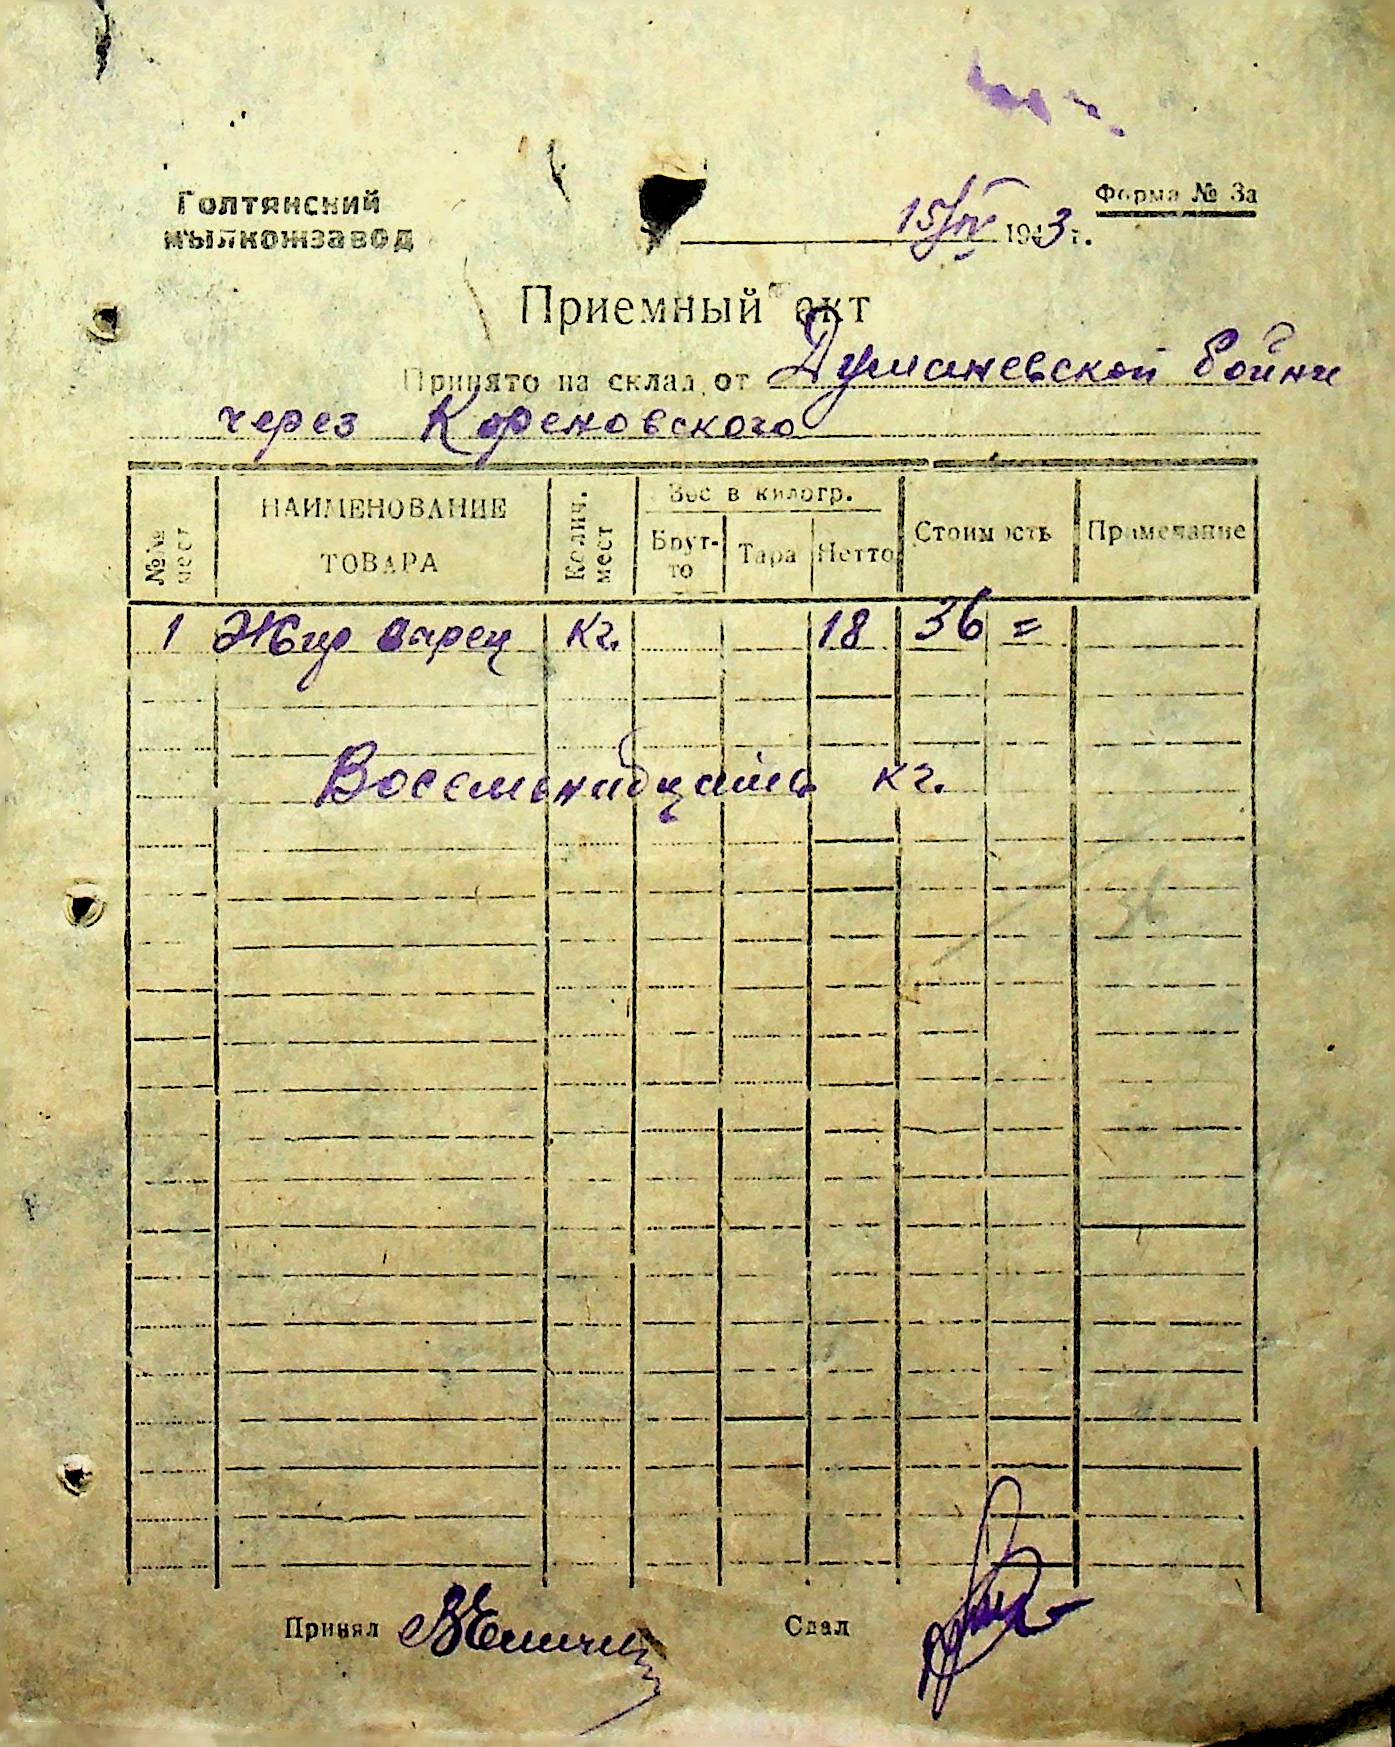 Голтянский
мылкожзавод
Форма № 3а
15/IV 1943 г.
Приемный акт
Принято на склад от Думаневской бойни
через Кореновского
№№ мест
НАИМЕНОВАНИЕ ТОВАРА
Колич. мест
Вес в килогр.
Брут-то
Тара
Нетто
Стоимость
Примечание
1 Жир варен кг. 18 36 =
Восемьнадцать кг.
36
Принял
Сдал